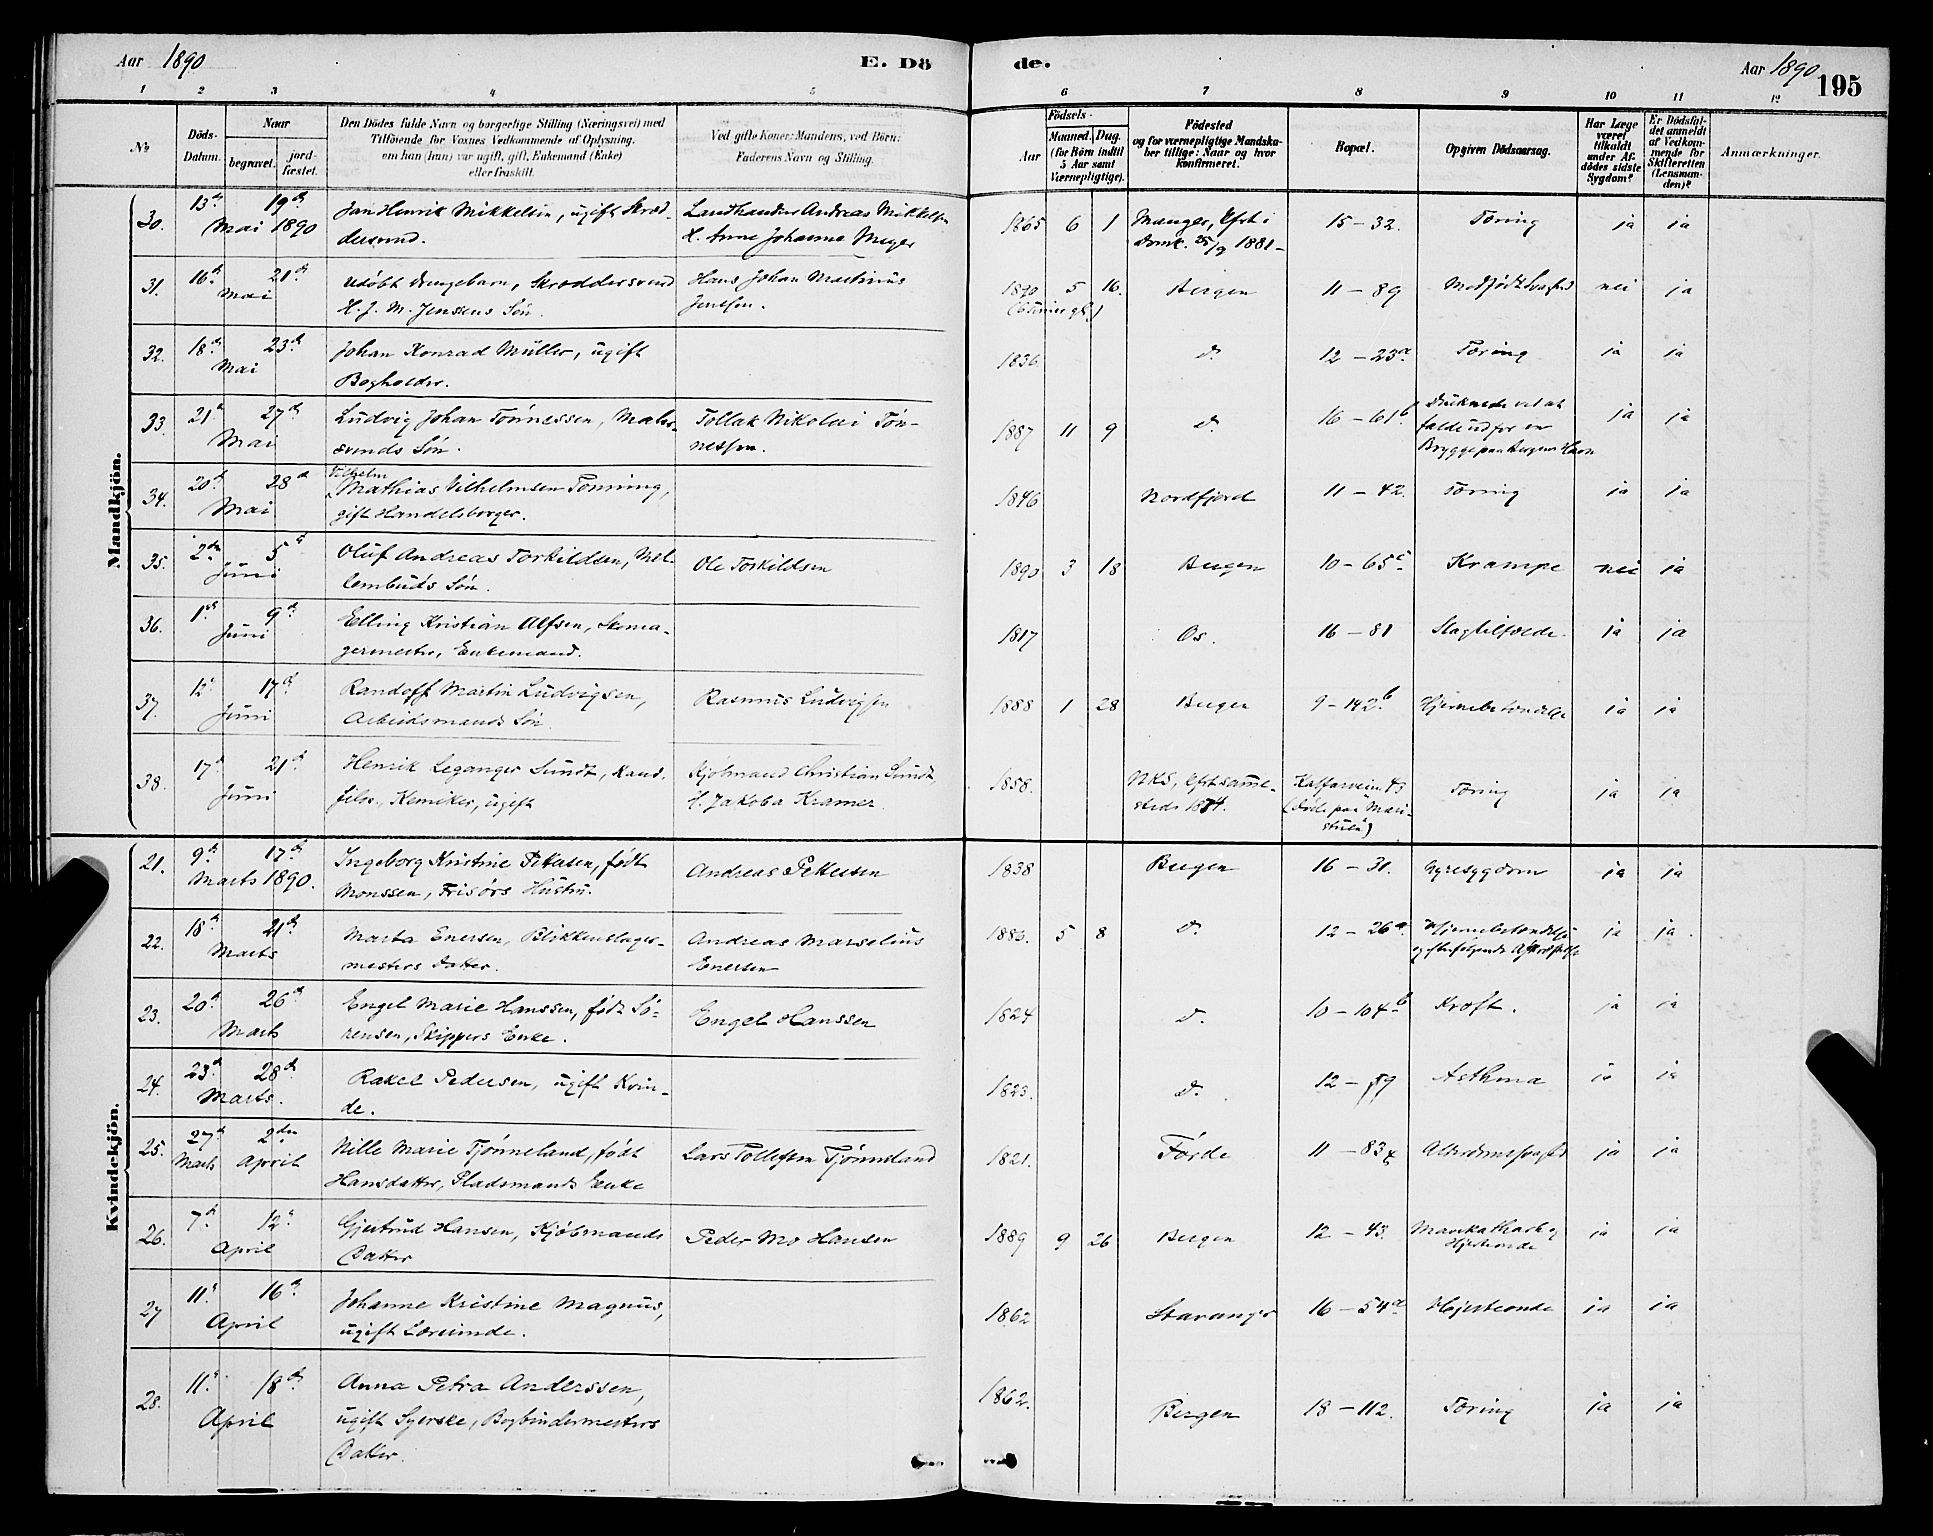 Aar 1890
E. Dö
de.
Aar 1890
195
1 2 3 4 5 6 7 8 9 10 11 12
No
Döds-
Datum.
Naar
begravet.
jord-
fæstet.
Den Dödes fulde Navn og borgerlige Stilling (Næringsvei) med
Tilföiende for Voxnes Vedkommende af Oplysning,
om han (hun) var ugift, gift, Enkemand (Enke)
eller fraskilt.
Ved gifte Koner: Mandens, ved Börn:
Faderens Navn og Stilling.
Födsels-
Aar
Maaned.
Dag.
(for Börn indtil
5 Aar samt
Værnepligtige).
Födested
og for værnepligtige Mandska-
ber tillige: Naar og hvor
konfirmeret.
Bopæl.
Opgiven Dödsaarsag.
Har Læge
været
tilkaldt
under Af-
dödes sidste
Sygdom?
Er Dödsfal-
det anmeldt
af Vedkom-
mende for
Skifteretten
(Lensman-
den)?
Anmærkninger.
Mandkjön.
30. 13de 19de Jan Henrik Mikkelsen, ugift Skræd- Landhandler Andreas Mikkelsen 1865 6 1 Manger, 15-32. Tæring ja ja
Mai 1890 dersvend. H. Anne Johanne Meyer Domk. 25/9 1881-
31. 16de 21de udöbt Drengebarn, Skræddersvend Hans Johan Martinius 1890 5 16. Bergen 11-89 Medfödt Svaghed nei ja
Mai H. J. M. Jensens Sön. Jenssen. (6 Timer gl.)
32. 18de 23de Johan Konrad Müller, ugift 1836. d. 12-23a Tæring ja ja
Mai Bogholder.
33. 21de 27de Ludvig Johan Tönnessen, Maler- Tollak Nikolai Tön- 1887 11 9 d. 16-61b Druknede ved at ja ja
Mai svends Sön. nessen. falde ud for en
Brygge paa Bergens Havn
34. 20de 28de Vilhelm
Mathias Vilhelmsen Tonning, 1846 Nordfjord 11-42. Tæring ja ja
Mai gift Handelsborger.
35. 2den 5te Oluf Andreas Torkildsen, Mel- Ole Torkildsen 1890 3 18 Bergen 10-65c Krampe nei ja
Juni lembuds Sön.
36. 1ste 9de Elling Kristian Alfsen, Skoma- 1817 Os. 16-81 Slagtilfælde. ja ja
Juni germester, Enkemand.
37. 12te 17de Randoff Martin Ludvigsen, Rasmus Ludvigsen 1888 1 28 Bergen 9-142b Hjernebetændelse ja ja
Juni Arbeidsmands Sön
38. 17de 21de Henrik Leganger Sundt, Kand. Kjöbmand Christian Sundt 1858. NKS, samme- Kalfarveien 48 Tæring ja ja
Juni filos., Kemiker, ugift H. Jakoba Kramer steds 1874. (döde paa "Mari-
stuen")
Kvindekjön.
21. 9de 17de Ingeborg Kristine Pettersen, född Andreas Pettersen 1838 Bergen 16-31. Nyresygdom ja ja
Marts 1890. Monssen, Frisörs Hustru.
22. 18de 21de Marta Enersen, Blikkenslager- Andreas Marselius 1886. 5 8 d. 12-26a. Hjernebetændelse ja ja.
Marts mesters Datter. Enersen og efterfölgende
23. 20de 26de Engel Marie Hanssen, födt Sö- Engel Hanssen 1824 d. 10-104b Kræft. ja ja
Marts rensen, Skippers Enke.
24. 23de 28de Rakel Pedersen, ugift Kvin- 1823. d. 12-59 Asthma ja ja
Marts. de.
25. 27de 2den Nille Marie Tjönneland, födt Lars Tollefsen Tjönneland 1821. Förde 11-83 Alderdomssvaghed ja ja
Marts April Hansdatter, Pladsmands Enke
26. 7de 12te Gjertrud Hansen, Kjöbmands Peder Mo Hansen 1889 9 26 Bergen 12-43. Mavekatharh og ja ja
April Datter Hjerteonde
27 11te 16de Johanne Kristine Magnus, 1862 Stavanger 16-54a Hjerteonde ja ja
April ugift Lærerinde.
28. 11te 18de Anna Petra Anderssen, 1862. Bergen 18-112. Tæring ja ja
April ugift Syerske, Bogbindermesters
Datter.